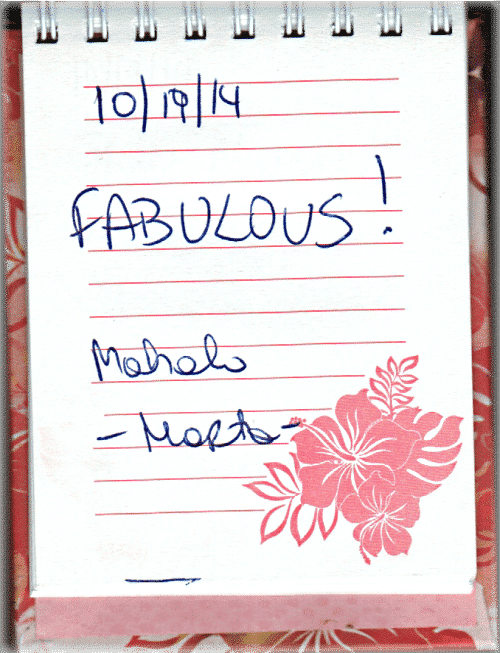 10/19/14
FABULOUS!
Mahalo
- Marta -